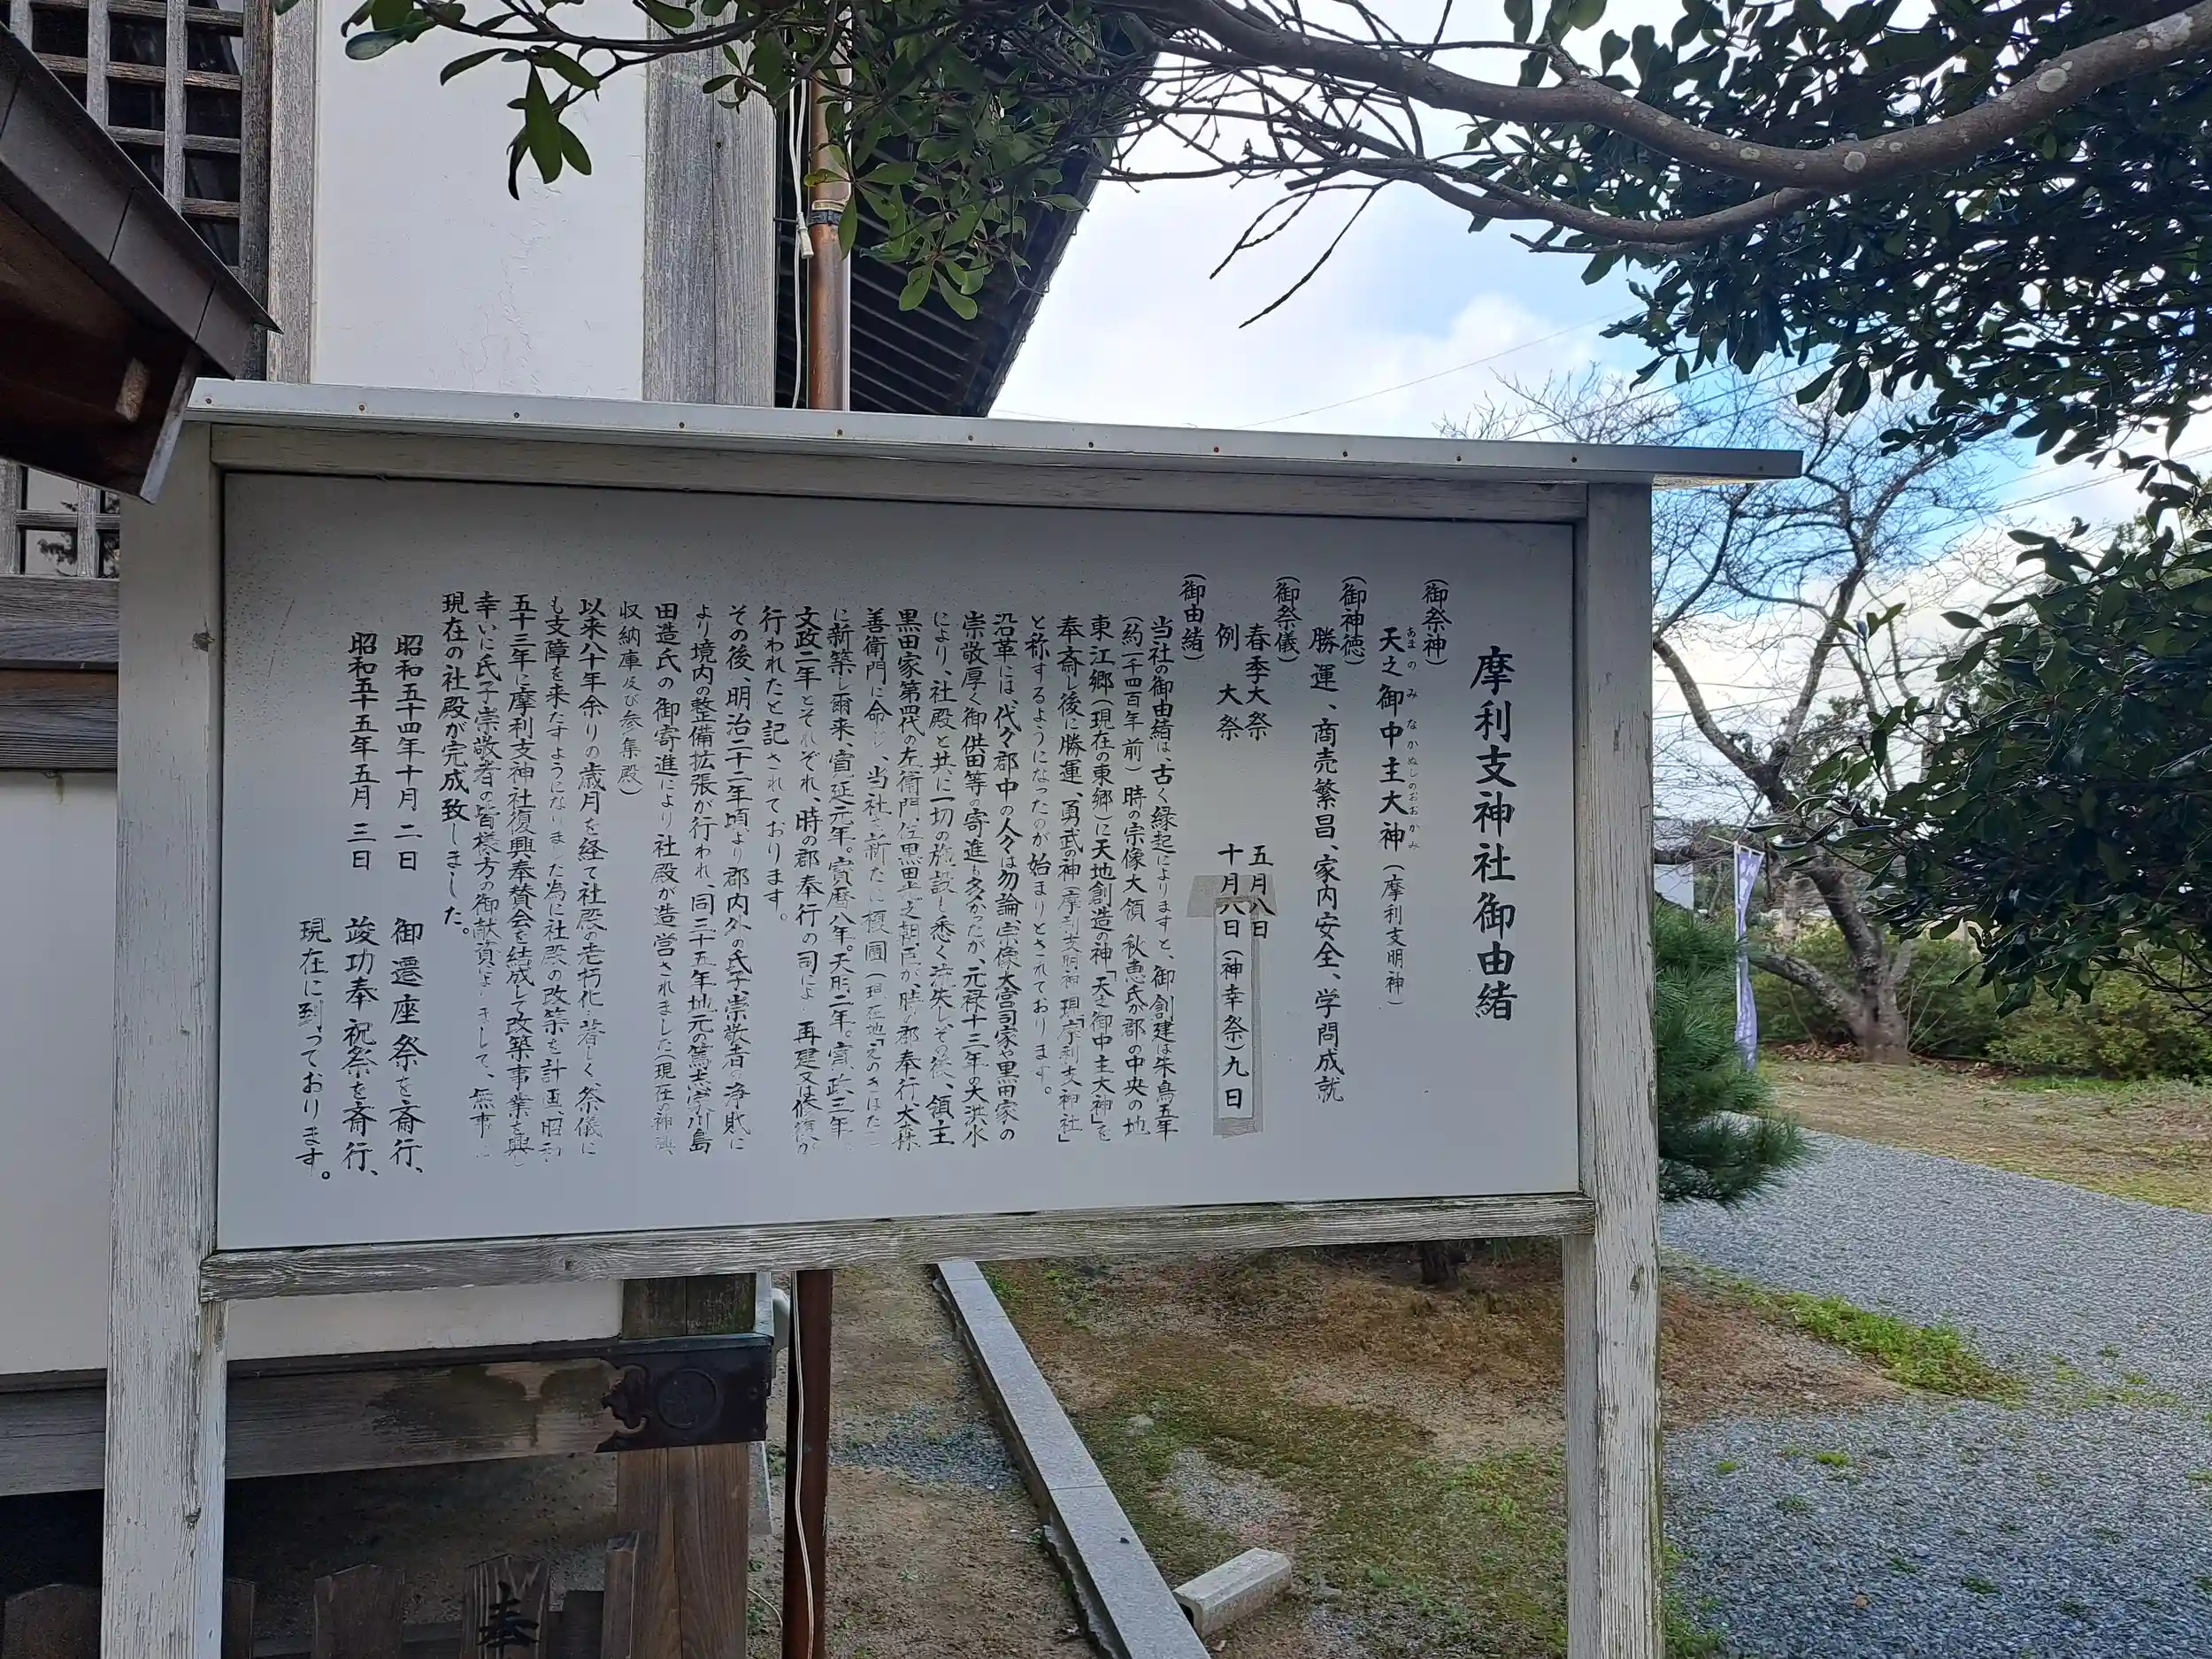 摩利支神社御由緒
(御祭神)
天之御中主大神(摩利支明神)
あまのみなかぬしのおおかみ
(御神徳)
勝運、商売繁昌、家内安全、学問成就
(御祭儀)
春季大祭 五月八日
例大祭 十月八日(神幸祭)九日
(御由緒)
当社の御由緒は、古く縁起によりますと、御創建は朱鳥五年
(約一千四百年前)時の宗像大領 秋恵氏が郡の中央の地
東江郷(現在の東郷)に天地創造の神「天之御中主大神」を
奉斎し後に勝運、勇武の神(摩利支明神)現「摩利支神社」
と称するようになったのが始まりとされております。
沿革には、代々郡中の人々は勿論、宗像大宮司家や黒田家の
崇敬厚く御供田等の寄進も多かったが、元禄十三年の大洪水
により、社殿と共に一切の施設も悉く流失しその後、領主
黒田家第四代の左衛門佐黒田 之朝臣が、時の郡奉行、大森
善衛門に命じ、当社を新たに榎園(現在地「えのきはた」
に新築し爾来、寛延元年。宝暦八年。天明二年。寛政三年
文政二年とそれぞれ、時の郡奉行の司によ 再建又は修復が
行われたと記されております。
その後、明治二十二年頃より郡内外の氏子、崇敬者の浄財に
より境内の整備拡張が行われ、同三十五年地元の篤志家小島
田造氏の御寄進により社殿が造営されました(現在の神輿
収納庫及び参集殿)
以来八十年余りの歳月を経て社殿の老朽化 著しく、祭儀に
も支障を来たすようになりました為に社殿の改築を計画、昭和
五十三年に摩利支神社復興奉賛会を結成して改築事業を興し
幸いに氏子崇敬者の皆様方の御献資によりまして、無事に
現在の社殿が完成致しました。
昭和五十四年十月二日 御遷座祭を斎行、
昭和五十五年五月三日 竣功奉祝祭を斎行、
現在に到っております。
奉